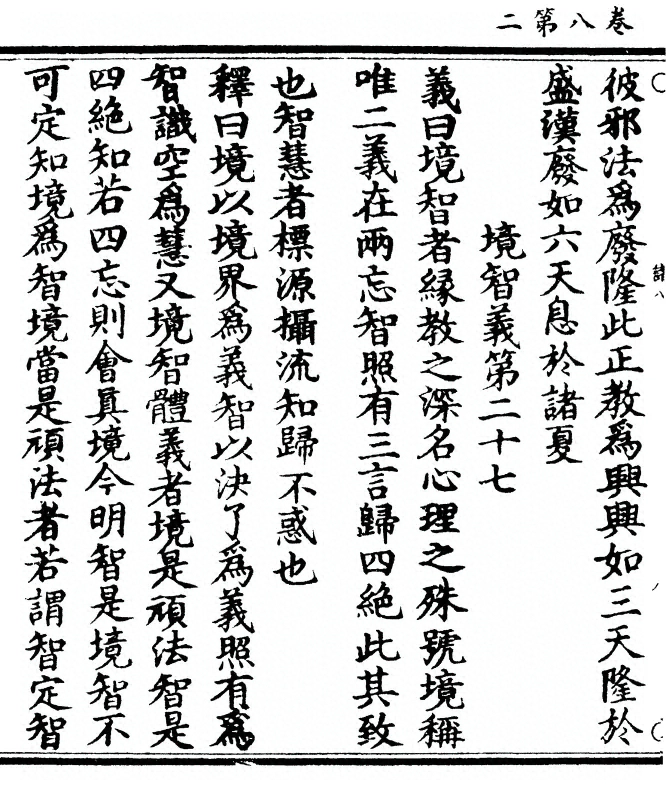 卷八第二
彼邪法爲廢隆此正教爲興興如三天隆於
盛漢廢如六天息於諸夏
境智義第二十七
義曰境智者緣教之深名心理之殊號境稱
唯二義在兩忘智照有三言歸四絶此其致
也智慧者標源攝流知歸不惑也
釋曰境以境界爲義智以決了爲義照有爲
智識空爲慧又境智體義者境是頑法智是
四絶知若四忘則會真境今明智是境智不
可定知境爲智境當是頑法者若謂智定智